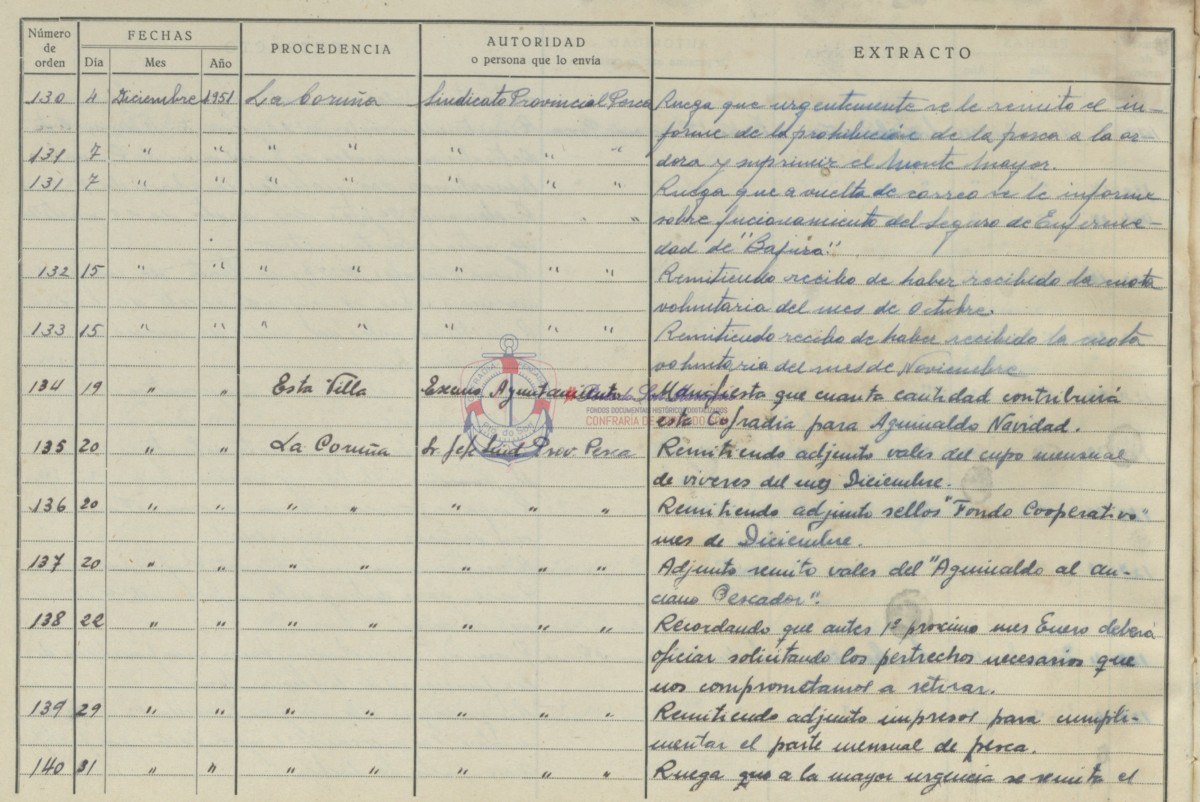 Número de orden FECHAS PROCEDENCIA AUTORIDAD o persona que lo envía EXTRACTO
Día Mes Año
130 4 Diciembre 1951 La Coruña Sindicato Provincial Pesca Ruega que urgentemente se le remita el in-
forme de la prohibición de la pesca a la ar-
131 7 " " " " " " " dora y suprimir el Monte Mayor.
131 7 " " " " " " " Ruega que a vuelta de correo se le informe
" sobre fucionamiento del Seguro de Enferme-
dad de "Bajura."
132 15 " " " " " " " Remitiendo recibo de haber recibido la cuota
voluntaria del mes de Octubre.
133 15 " " " " " " " Remitiendo recibo de haber recibido la cuota
voluntaria del mes de Noviembre
134 19 " " Esta Villa Excmo Ayuntamiento Manifiesta que cuanta cantidad contribuirá
esta Cofradia para Aguinaldo Navidad.
FONDOS DOCUMENTAIS HISTÓRICOS DIXITALIZADOS
CONFRARIA DE
135 20 " " La Coruña Sr. Jefe Sind. Prov. Pesca Remitiendo adjunto vales del cupo mensual
de viveres del mes Diciembre.
136 20 " " " " " " " Remitiendo adjunto sellos "Fondo Cooperativo"
mes de Diciembre.
137 20 " " " " " " " Adjunto remito vales del "Aguinaldo al an-
ciano Pescador".
138 22 " " " " " " " Recordando que antes 1º proximo mes Enero deberá
oficiar solicitando los pertrechos necesarios que
nos comprometamos a retirar.
139 29 " " " " " " " Remitiendo adjunto impresos para cumpli-
mentar el parte mensual de pesca.
140 31 " " " " " " " Ruega que a la mayor urgencia se remita el